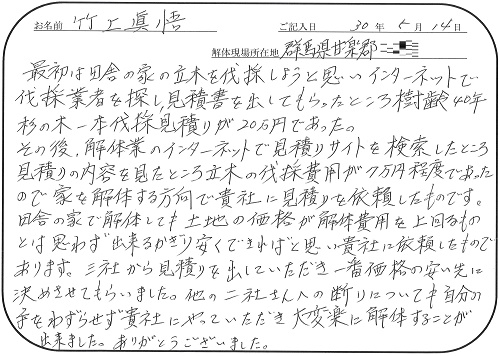 お名前 竹上眞悟 ご記入日 30年 5月 14日
解体現場所在地 群馬県甘楽郡
最初は田舎の家の立木を伐採しようと思いインターネットで
伐採業者を探し見積書を出してもらったところ樹齢40年
杉の木一本伐採見積りが20万円であった。
その後、解体業のインターネットで見積りサイトを検索したところ
見積りの内容を見たところ立木の伐採費用が7万円程度であった
ので家を解体する方向で貴社に見積りを依頼したものです。
田舎の家で解体しても土地の価格が解体費用を上回るもの
とは思わず出来るかぎり安くできればと思い貴社に依頼したもので
あります。三社から見積りを出していただき一番価格の安い先に
決めさせてもらいました。他の二社さんへの断りについても自分の
手をわずらせず貴社にやっていただき大変楽に解体することが
出来ました。ありがとうございました。